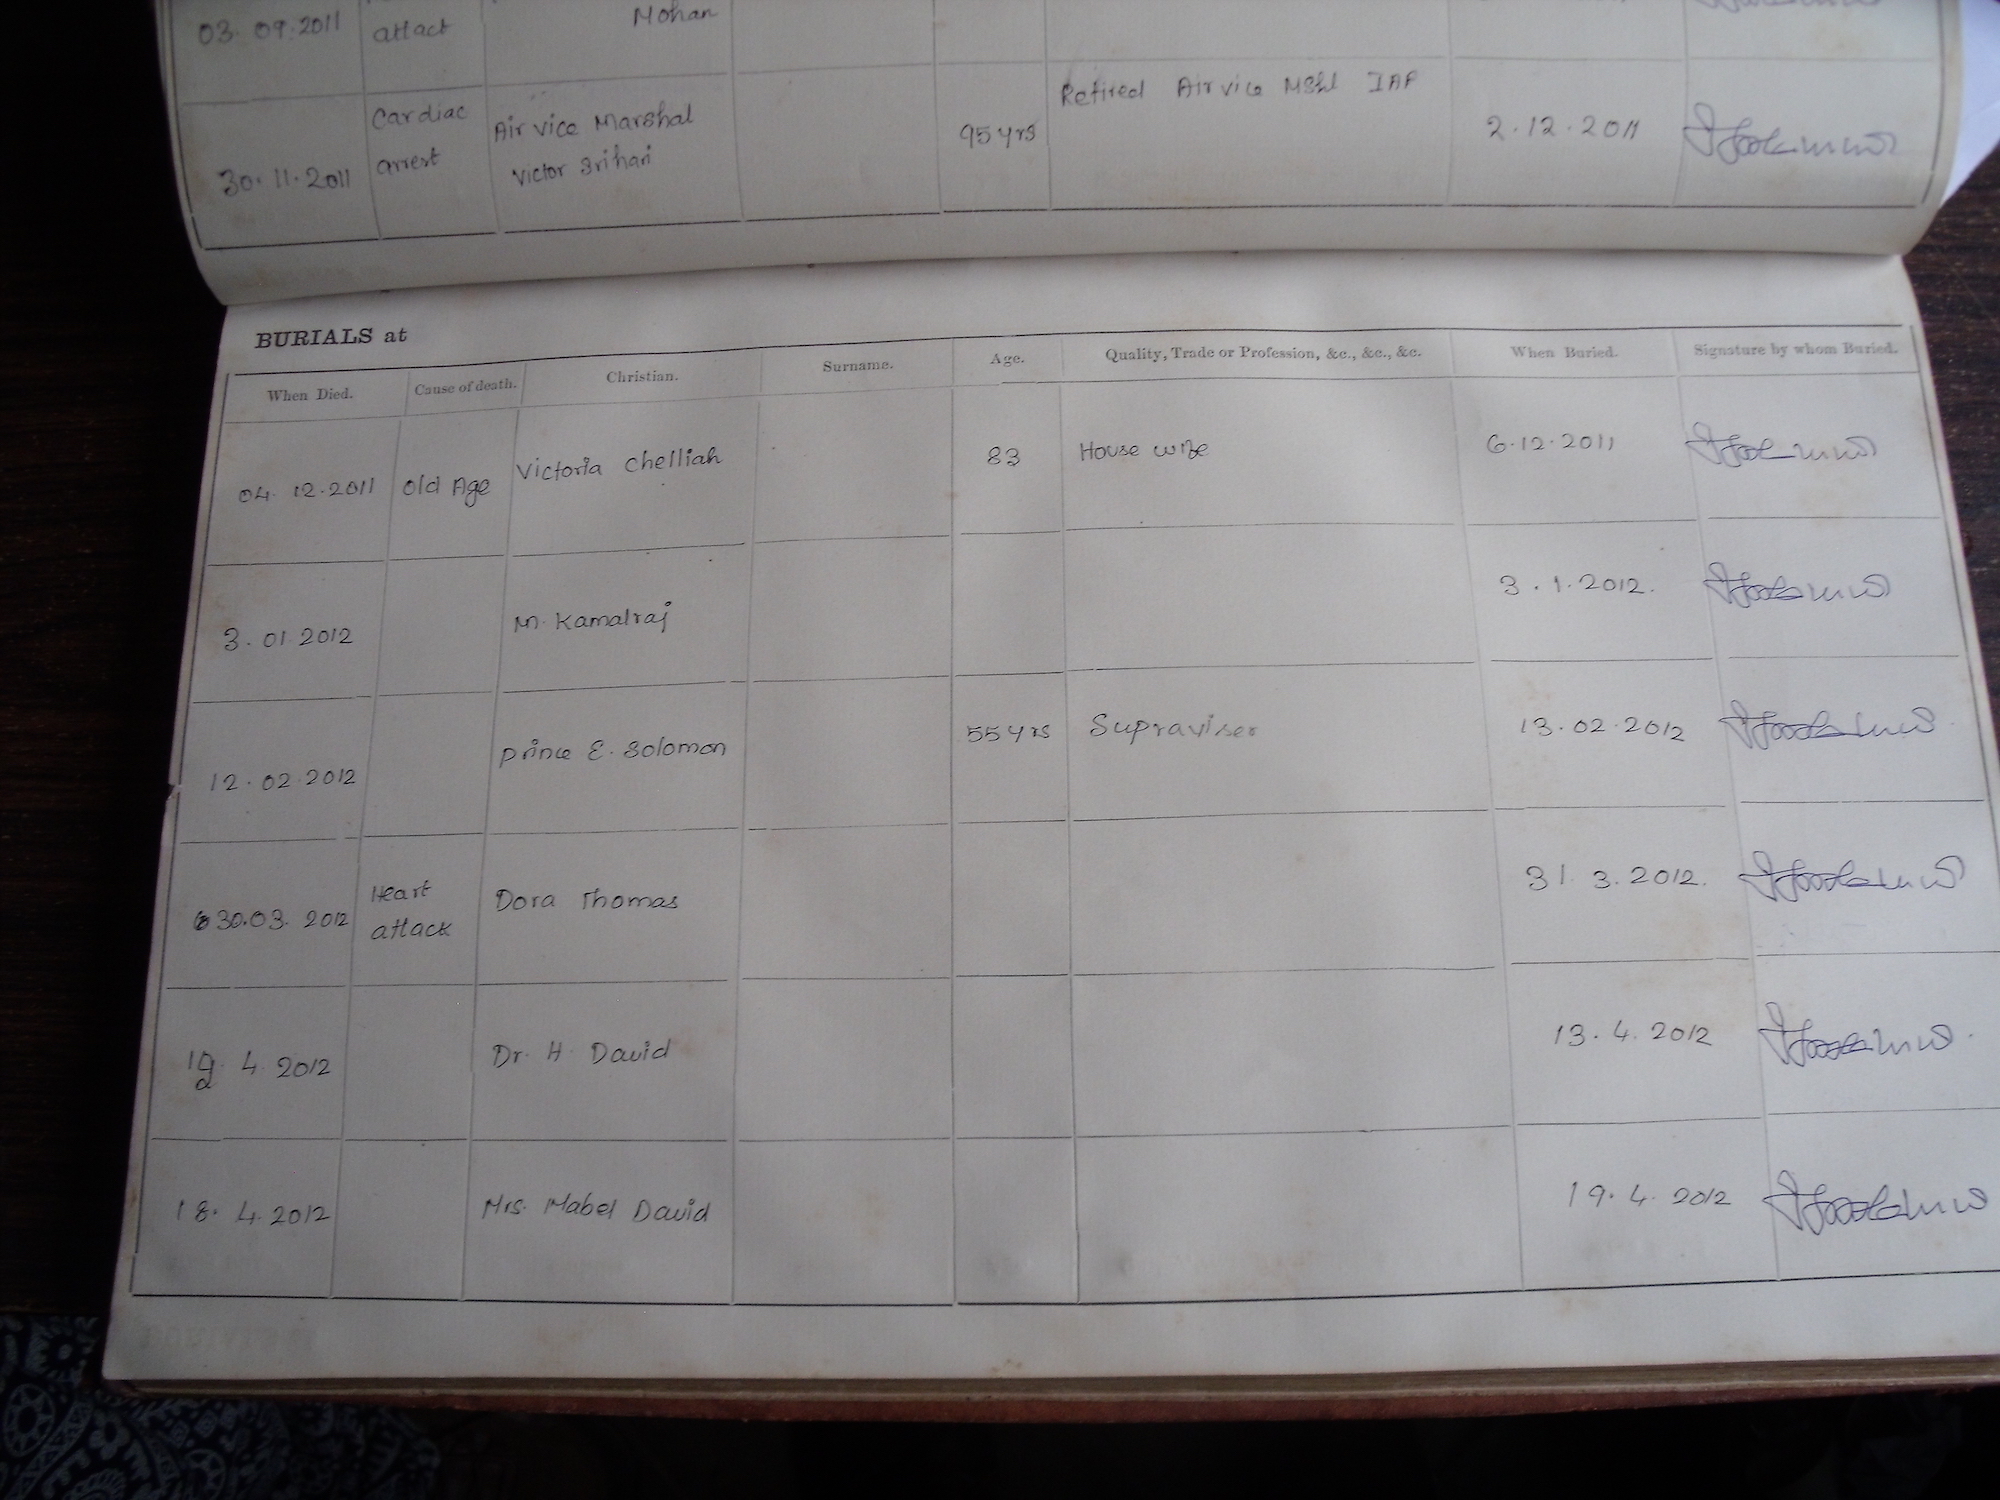 Mohan
03. 09. 2011 attact
Retired Air vice Mshl IAF
Cardiac
Air vice Marshal 95 yrs 2. 12. 2011
30. 11. 2011 arrest Victor Srihari
BURIALS at
When Died. Cause of death. Christian. Surname. Age. Quality, Trade or Profession, &c., &c., &c. When Buried. Signature by whom Buried.
04. 12. 2011 Old Age Victoria Chelliah 83 House wife 6. 12. 2011
3. 01. 2012 M. Kamalraj 3. 1. 2012.
12. 02. 2012 Prince E. Solomon 55 yrs Supraviser 13. 02. 2012
Heart
30.03. 2012 attack Dora Thomas 31. 3. 2012.
4. 2012 Dr. H. David 13. 4. 2012
18. 4. 2012 Mrs. Mabel David 19. 4. 2012